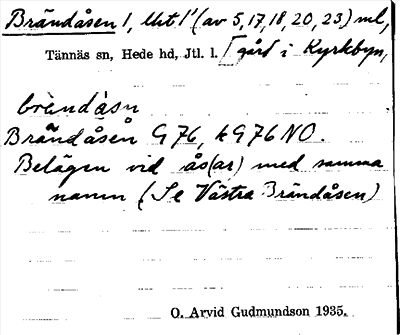 Brändåsen 1, litt 1' (av 5,17,18,20,23) ml,
Tännäs sn, Hede hd, Jtl. l. [gård i Kyrkbyn,
brèndåsn
Brändåsen G76, kG76NO.
Belägen vid ås(ar) med samma
namn (Se Västra Brändåsen)
O. Arvid Gudmundson 1935.